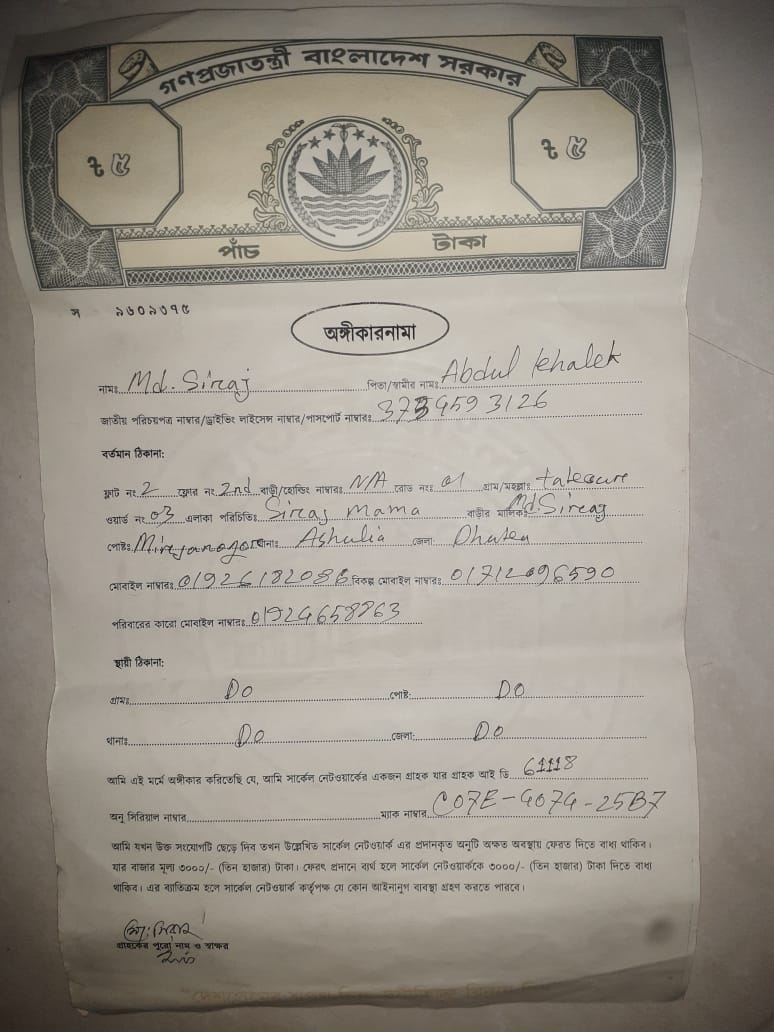 গণপ্রজাতন্ত্রী বাংলাদেশ সরকার
৳ ৫ ৳ ৫
পাঁচ টাকা
স ৯৬০৯৩৭৫
অঙ্গীকারনামা
নামঃ Md. Siraj পিতা/স্বামীর নামঃ Abdul Khalek
জাতীয় পরিচয়পত্র নাম্বার/ড্রাইভিং লাইসেন্স নাম্বার/পাসপোর্ট নাম্বারঃ 3734593126
বর্তমান ঠিকানা:
ফ্লাট নং 2 ফ্লোর নং 2nd বাড়ী/হোল্ডিং নাম্বারঃ N/A রোড নংঃ 01 গ্রাম/মহল্লাঃ
ওয়ার্ড নং 03 এলাকা পরিচিতিঃ Siraj Mama বাড়ীর মালিকঃ Md. Siraj
পোষ্টঃ থানাঃ Ashulia জেলা:
মোবাইল নাম্বারঃ 01926182086 বিকল্প মোবাইল নাম্বারঃ 01712096590
পরিবারের কারো মোবাইল নাম্বারঃ 01924658863
স্থায়ী ঠিকানা:
গ্রামঃ Do পোষ্ট: Do
থানাঃ Do জেলা: Do
আমি এই মর্মে অঙ্গীকার করিতেছি যে, আমি সার্কেল নেটওয়ার্কের একজন গ্রাহক যার গ্রাহক আই ডি 61118
অনু সিরিয়াল নাম্বার ম্যাক নাম্বার C07E-4074-25B7
আমি যখন উক্ত সংযোগটি ছেড়ে দিব তখন উল্লেখিত সার্কেল নেটওয়ার্ক এর প্রদানকৃত অনুটি অক্ষত অবস্থায় ফেরত দিতে বাধ্য থাকিব।
যার বাজার মূল্য ৩০০০/- (তিন হাজার) টাকা। ফেরৎ প্রদানে ব্যর্থ হলে সার্কেল নেটওয়ার্ককে ৩০০০/- (তিন হাজার) টাকা দিতে বাধ্য
থাকিব। এর ব্যতিক্রম হলে সার্কেল নেটওয়ার্ক কর্তৃপক্ষ যে কোন আইনানুগ ব্যবস্থা গ্রহণ করতে পারবে।
মোঃ সিরাজ
গ্রাহকের পুরো নাম ও স্বাক্ষর